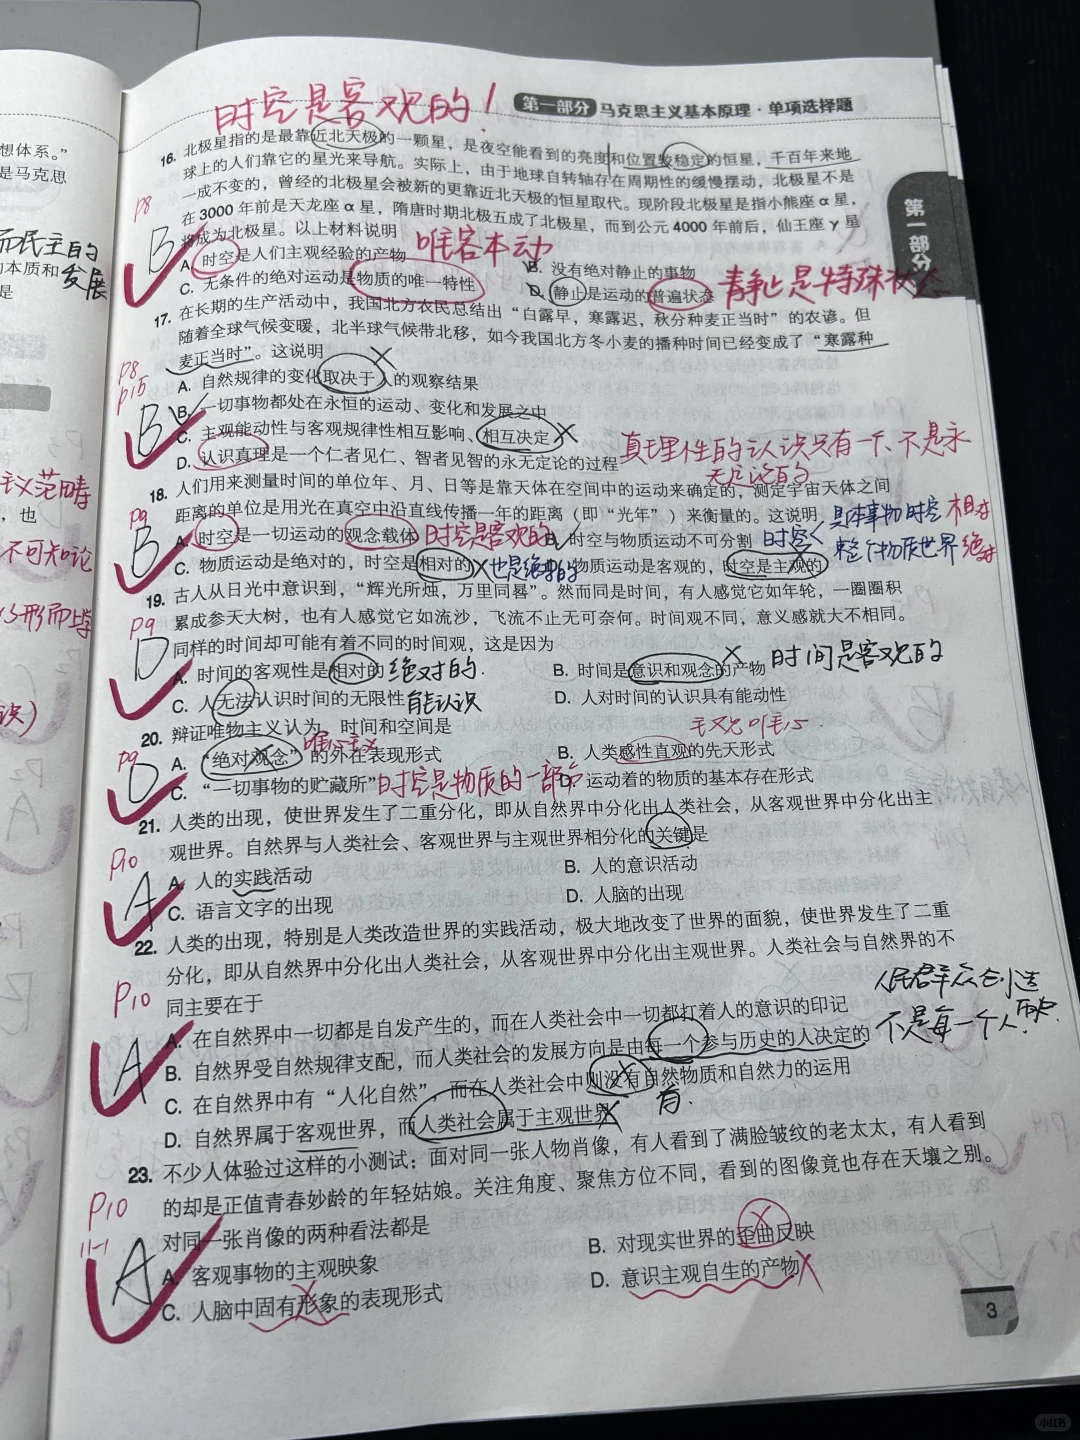 时空是客观的！
第一部分 马克思主义基本原理·单项选择题
想体系。”
是马克思
而民主的
的本质和发展
是
主义范畴
，也
不可知论
形而上学
识）
第一部分
16. 北极星指的是最靠近北天极的一颗星，是夜空能看到的亮度和位置较稳定的恒星，千百年来地
球上的人们靠它的星光来导航。实际上，由于地球自转轴存在周期性的缓慢摆动，北极星不是
一成不变的，曾经的北极星会被新的更靠近北天极的恒星取代。现阶段北极星是指小熊座α星，
P8
在 3000 年前是天龙座α星，隋唐时期北极五成了北极星，而到公元 4000 年前后，仙王座γ星
将成为北极星。以上材料说明
B
唯客本动
A. 时空是人们主观经验的产物
B. 没有绝对静止的事物
C. 无条件的绝对运动是物质的唯一特性
D. 静止是运动的普遍状态
静止是特殊状态
17. 在长期的生产活动中，我国北方农民总结出“白露早，寒露迟，秋分种麦正当时”的农谚。但
随着全球气候变暖，北半球气候带北移，如今我国北方冬小麦的播种时间已经变成了“寒露种
麦正当时”。这说明
P8
P15
B
A. 自然规律的变化取决于人的观察结果
B. 一切事物都处在永恒的运动、变化和发展之中
C. 主观能动性与客观规律性相互影响、相互决定
D. 认识真理是一个仁者见仁、智者见智的永无定论的过程
真理性的认识只有一个、不是永
无定论的
18. 人们用来测量时间的单位年、月、日等是靠天体在空间中的运动来确定的，测定宇宙天体之间
距离的单位是用光在真空中沿直线传播一年的距离（即“光年”）来衡量的。这说明
P9
B
A. 时空是一切运动的观念载体
时空是客观的
B. 时空与物质运动不可分割
时空
具体事物时空 相对
整个物质世界 绝对
C. 物质运动是绝对的，时空是相对的
也是绝对的
D. 物质运动是客观的，时空是主观的
19. 古人从日光中意识到，“辉光所烛，万里同晷”。然而同是时间，有人感觉它如年轮，一圈圈积
累成参天大树，也有人感觉它如流沙，飞流不止无可奈何。时间观不同，意义感就大不相同。
同样的时间却可能有着不同的时间观，这是因为
P9
D
A. 时间的客观性是相对的
绝对的.
B. 时间是意识和观念的产物
时间是客观的
C. 人无法认识时间的无限性
有能认识
D. 人对时间的认识具有能动性
20. 辩证唯物主义认为，时间和空间是
P9
D
A. “绝对观念”的外在表现形式
唯心主义
B. 人类感性直观的先天形式
主观唯心
C. “一切事物的贮藏所”
时空是物质的一部分
D. 运动着的物质的基本存在形式
21. 人类的出现，使世界发生了二重分化，即从自然界中分化出人类社会，从客观世界中分化出主
观世界。自然界与人类社会、客观世界与主观世界相分化的关键是
P10
A
A. 人的实践活动
B. 人的意识活动
C. 语言文字的出现
D. 人脑的出现
22. 人类的出现，特别是人类改造世界的实践活动，极大地改变了世界的面貌，使世界发生了二重
分化，即从自然界中分化出人类社会，从客观世界中分化出主观世界。人类社会与自然界的不
同主要在于
P10
A
A. 在自然界中一切都是自发产生的，而在人类社会中一切都打着人的意识的印记
B. 自然界受自然规律支配，而人类社会的发展方向是由每一个参与历史的人决定的
人民群众创造历史.
不是每一个人.
C. 在自然界中有“人化自然”，而在人类社会中则没有自然物质和自然力的运用
有.
D. 自然界属于客观世界，而人类社会属于主观世界
23. 不少人体验过这样的小测试：面对同一张人物肖像，有人看到了满脸皱纹的老太太，有人看到
的却是正值青春妙龄的年轻姑娘。关注角度、聚焦方位不同，看到的图像竟也存在天壤之别。
对同一张肖像的两种看法都是
P10
11-1
A
A. 客观事物的主观映象
B. 对现实世界的歪曲反映
C. 人脑中固有形象的表现形式
D. 意识主观自生的产物
3